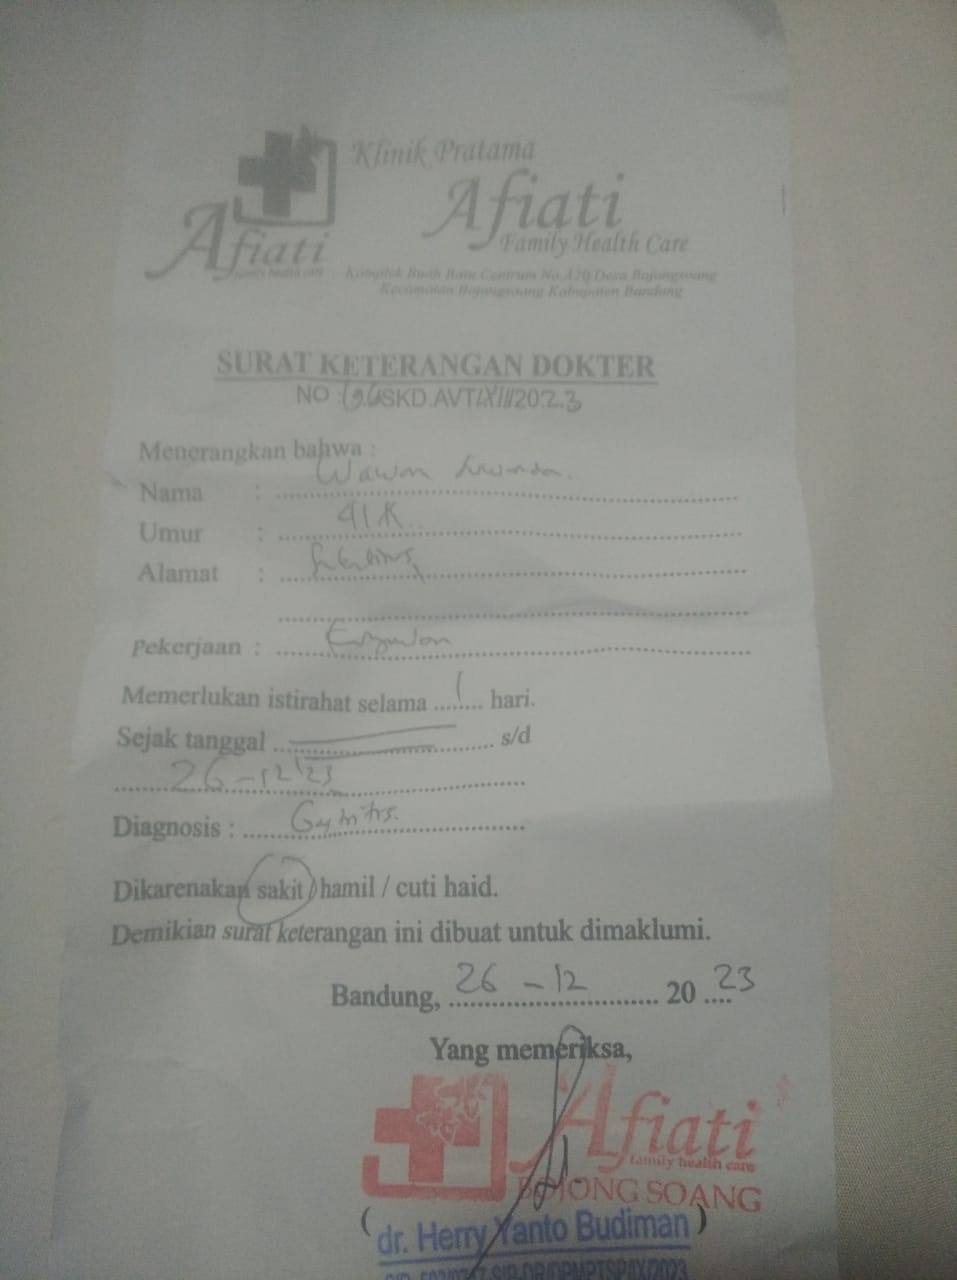 Klinik Pratama
Afiati
Family Health Care
Afiati
family health care
Komplek Buah Batu Centrum No.A20 Desa Bojongsoang
Kecamatan Bojongsoang Kabupaten Bandung
SURAT KETERANGAN DOKTER
NO : SKD.AVT/XII/2023
Menerangkan bahwa :
Nama : Wawan
Umur : 41
Alamat :
Pekerjaan :
Memerlukan istirahat selama 1 hari.
Sejak tanggal s/d
26-12'23
Diagnosis :
Dikarenakan sakit / hamil / cuti haid.
Demikian surat keterangan ini dibuat untuk dimaklumi.
Bandung, 26 - 12 20 23
Yang memeriksa,
Afiati
family health care
BOJONG SOANG
( dr. Herry Yanto Budiman )